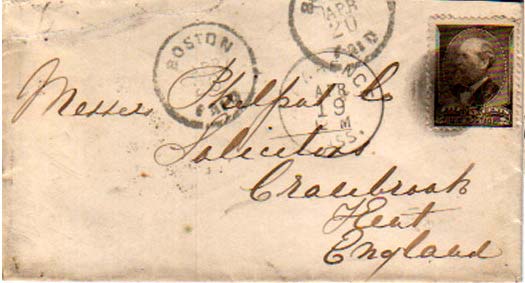 BOSTON
PAID
APR
20
PAID
APR
19
M
ASS.
Messrs Philpot & Co
Solicitors
Cranebrook
Kent
England